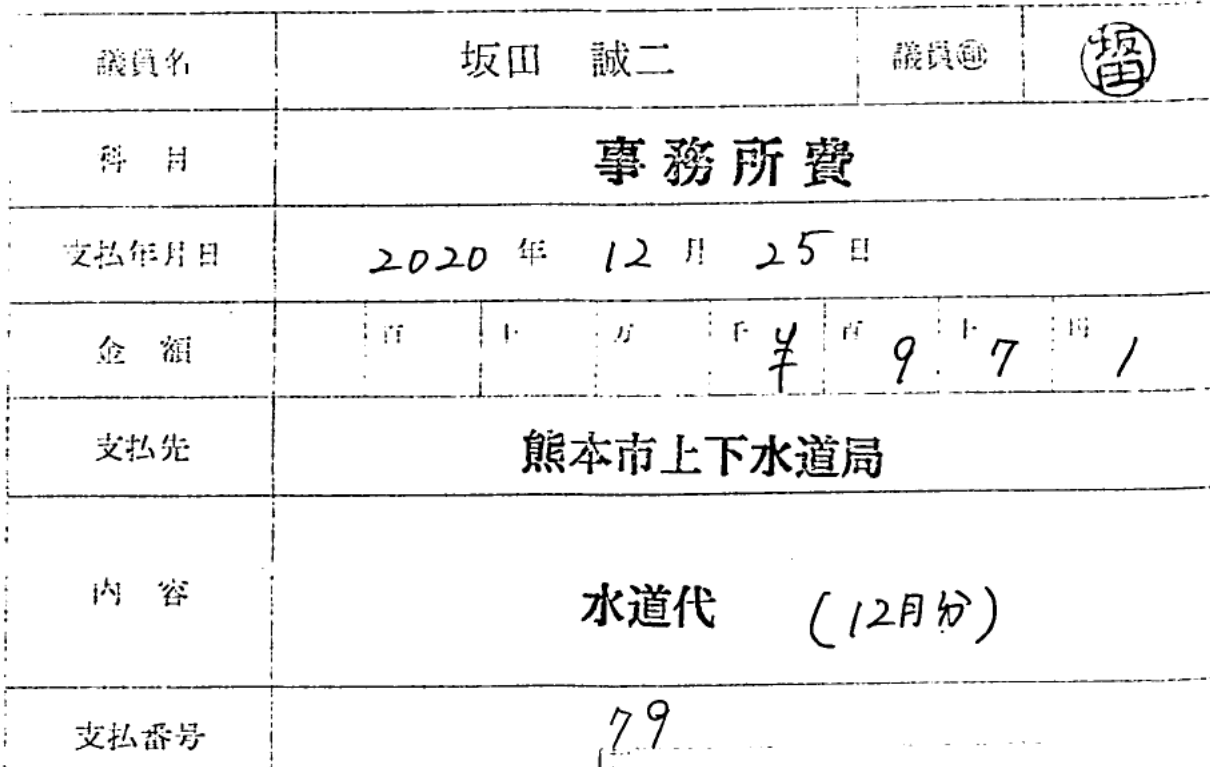 議員名 坂田 誠二 議員㊞ 坂田
科 目 事務所費
支払年月日 2020 年 12 月 25 日
金 額 百 十 万 千 ¥ 百 9 十 7 円 1
支払先 熊本市上下水道局
内 容 水道代 (12月分)
支払番号 79